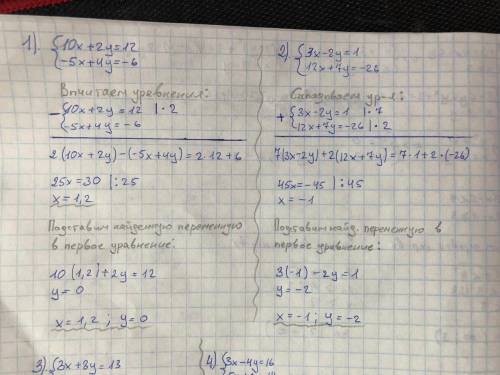 1). {10x+2y=12
{-5x+4y=-6
Вычитаем уравнения:
- {10x+2y=12 |·2
{-5x+4y=-6
2(10x+2y)-(-5x+4y)=2·12+6
25x=30 |:25
x=1,2
Подставим найденную переменную
в первое уравнение:
10(1,2)+2y=12
y=0
x=1,2; y=0
3) {2x+8y=13
2) {3x-2y=1
{12x+7y=-26
Складываем ур-я:
+ {3x-2y=1 |·7
{12x+7y=-26 |·2
7(3x-2y)+2(12x+7y)=7·1+2·(-26)
45x=-45 |:45
x=-1
Подставим найд. переменную в
первое уравнение:
3(-1)-2y=1
y=-2
x=-1; y=-2
4) {3x-4y=16